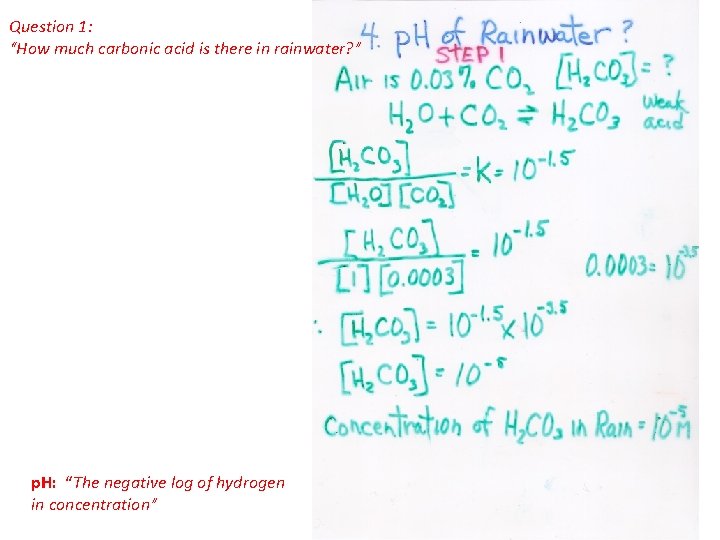 Question 1:
“How much carbonic acid is there in rainwater?”
4. pH of Rainwater?
STEP 1
Air is 0.03% CO₂ [H₂CO₃]= ?
H₂O + CO₂ ⇌ H₂CO₃ weak acid
[H₂CO₃] / [H₂O][CO₂] = K = 10⁻¹·⁵
[H₂CO₃] / [1][0.0003] = 10⁻¹·⁵ 0.0003 = 10⁻³·⁵
∴ [H₂CO₃] = 10⁻¹·⁵ x 10⁻³·⁵
[H₂CO₃] = 10⁻⁵
Concentration of H₂CO₃ in Rain = 10⁻⁵ M
pH: “The negative log of hydrogen
in concentration”